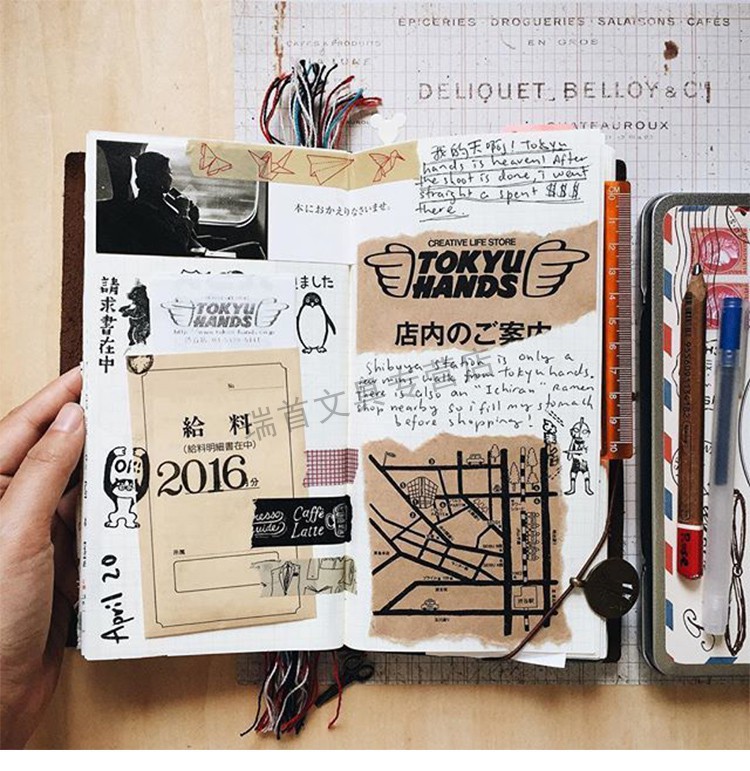 EPICERIES - DROGUERIES - SALAISONS - CAFÉS
EN GROS
CAFÉS & PRODUITS
DELIQUET, BELLOY & Cie
CHATEAUROUX
我的天啊! Tokyu
hands is heaven! After
the shoot is done, i went
straight & spent $$$
there.
本におかえりなさいませ。
CREATIVE LIFE STORE
TOKYU
HANDS
店内のご案内
ました
請求書在中
TOKYU
HANDS
Shibuya station is only a
few mins walk from tokyu hands.
There is also an "Ichiran" Ramen
shop nearby so i fill my stomach
before shopping!
瑞首文具
No
給料
(給料明細書在中)
2016
月分
Caffè
Latte
所属
April 20
渋谷駅